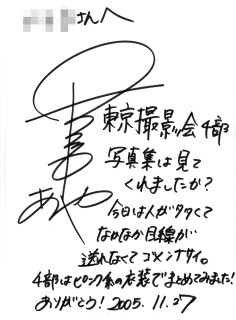 さんへ
東京撮影会4部
写真集は見て
くれましたか?
今日は人が多くて
なかなか目線が
送れなくてゴメンナサイ。
4部はピンク系の衣装でまとめてみました!
ありがとう! 2005.11.27